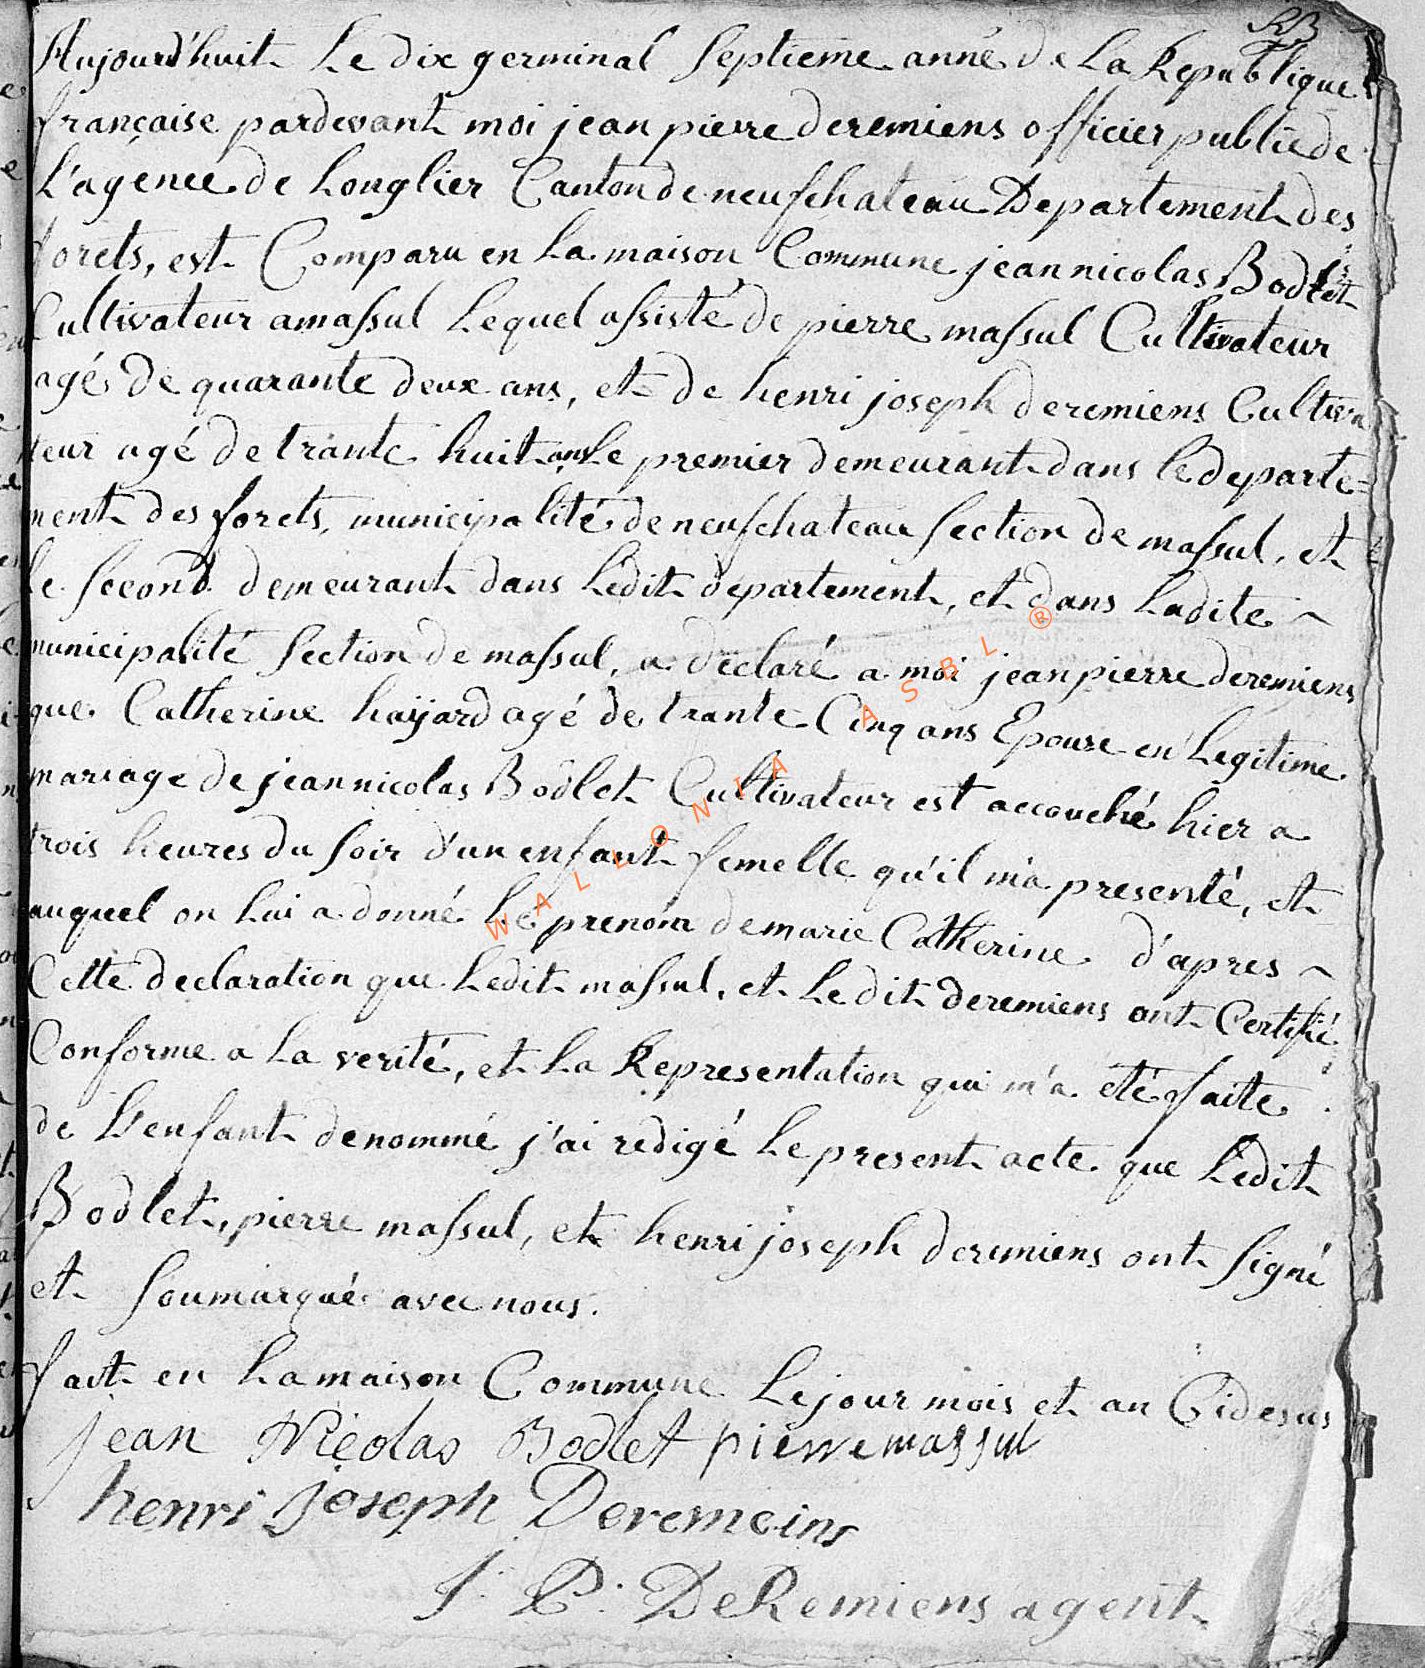 Aujourd'huit Le dix germinal Septieme anné de La Republique
française pardevant moi jean pierre deremiens officier public de
L'agence de Longlier Canton de neufchateau Departement des
forets, est Comparu en La maison Commune jean nicolas Bodlet
Cultivateur a massul Lequel assisté de pierre massul Cultivateur
agé de quarante deux ans, et de henri joseph deremiens Cultiva
teur agé de trante huit ans Le premier demeurant dans le departe=
ment des forets, municipalité de neufchateau Section de massul, et
le Second demeurant dans Ledit departement, et dans Ladite
municipalité Section de massul, a declaré a moi jean pierre deremiens
que Catherine hayard agé de trante Cinq ans Epouse en Legitime
mariage de jean nicolas Bodlet Cultivateur est accouché hier a
trois heures du Soir d'un enfant femelle qu'il m'a presenté, et
auquel on Lui a donné Le prenom de marie Catherine d'apres
Cette declaration que Ledit massul, et Le dit deremiens ont Certifié
Conforme a La verité, et La Representation qui m'a eté faite
de L'enfant denommé j'ai redigé Le present acte que Ledit
Bodlet, pierre massul, et henri joseph deremiens ont Signé
et Soumarqué avec nous.
fait en La maison Commune Le jour mois et an Cidesus
jean Nicolas Bodlet pierre massul
henri joseph Deremeins
J. P. DeRemiens agent
WALLONIA ASBL ®